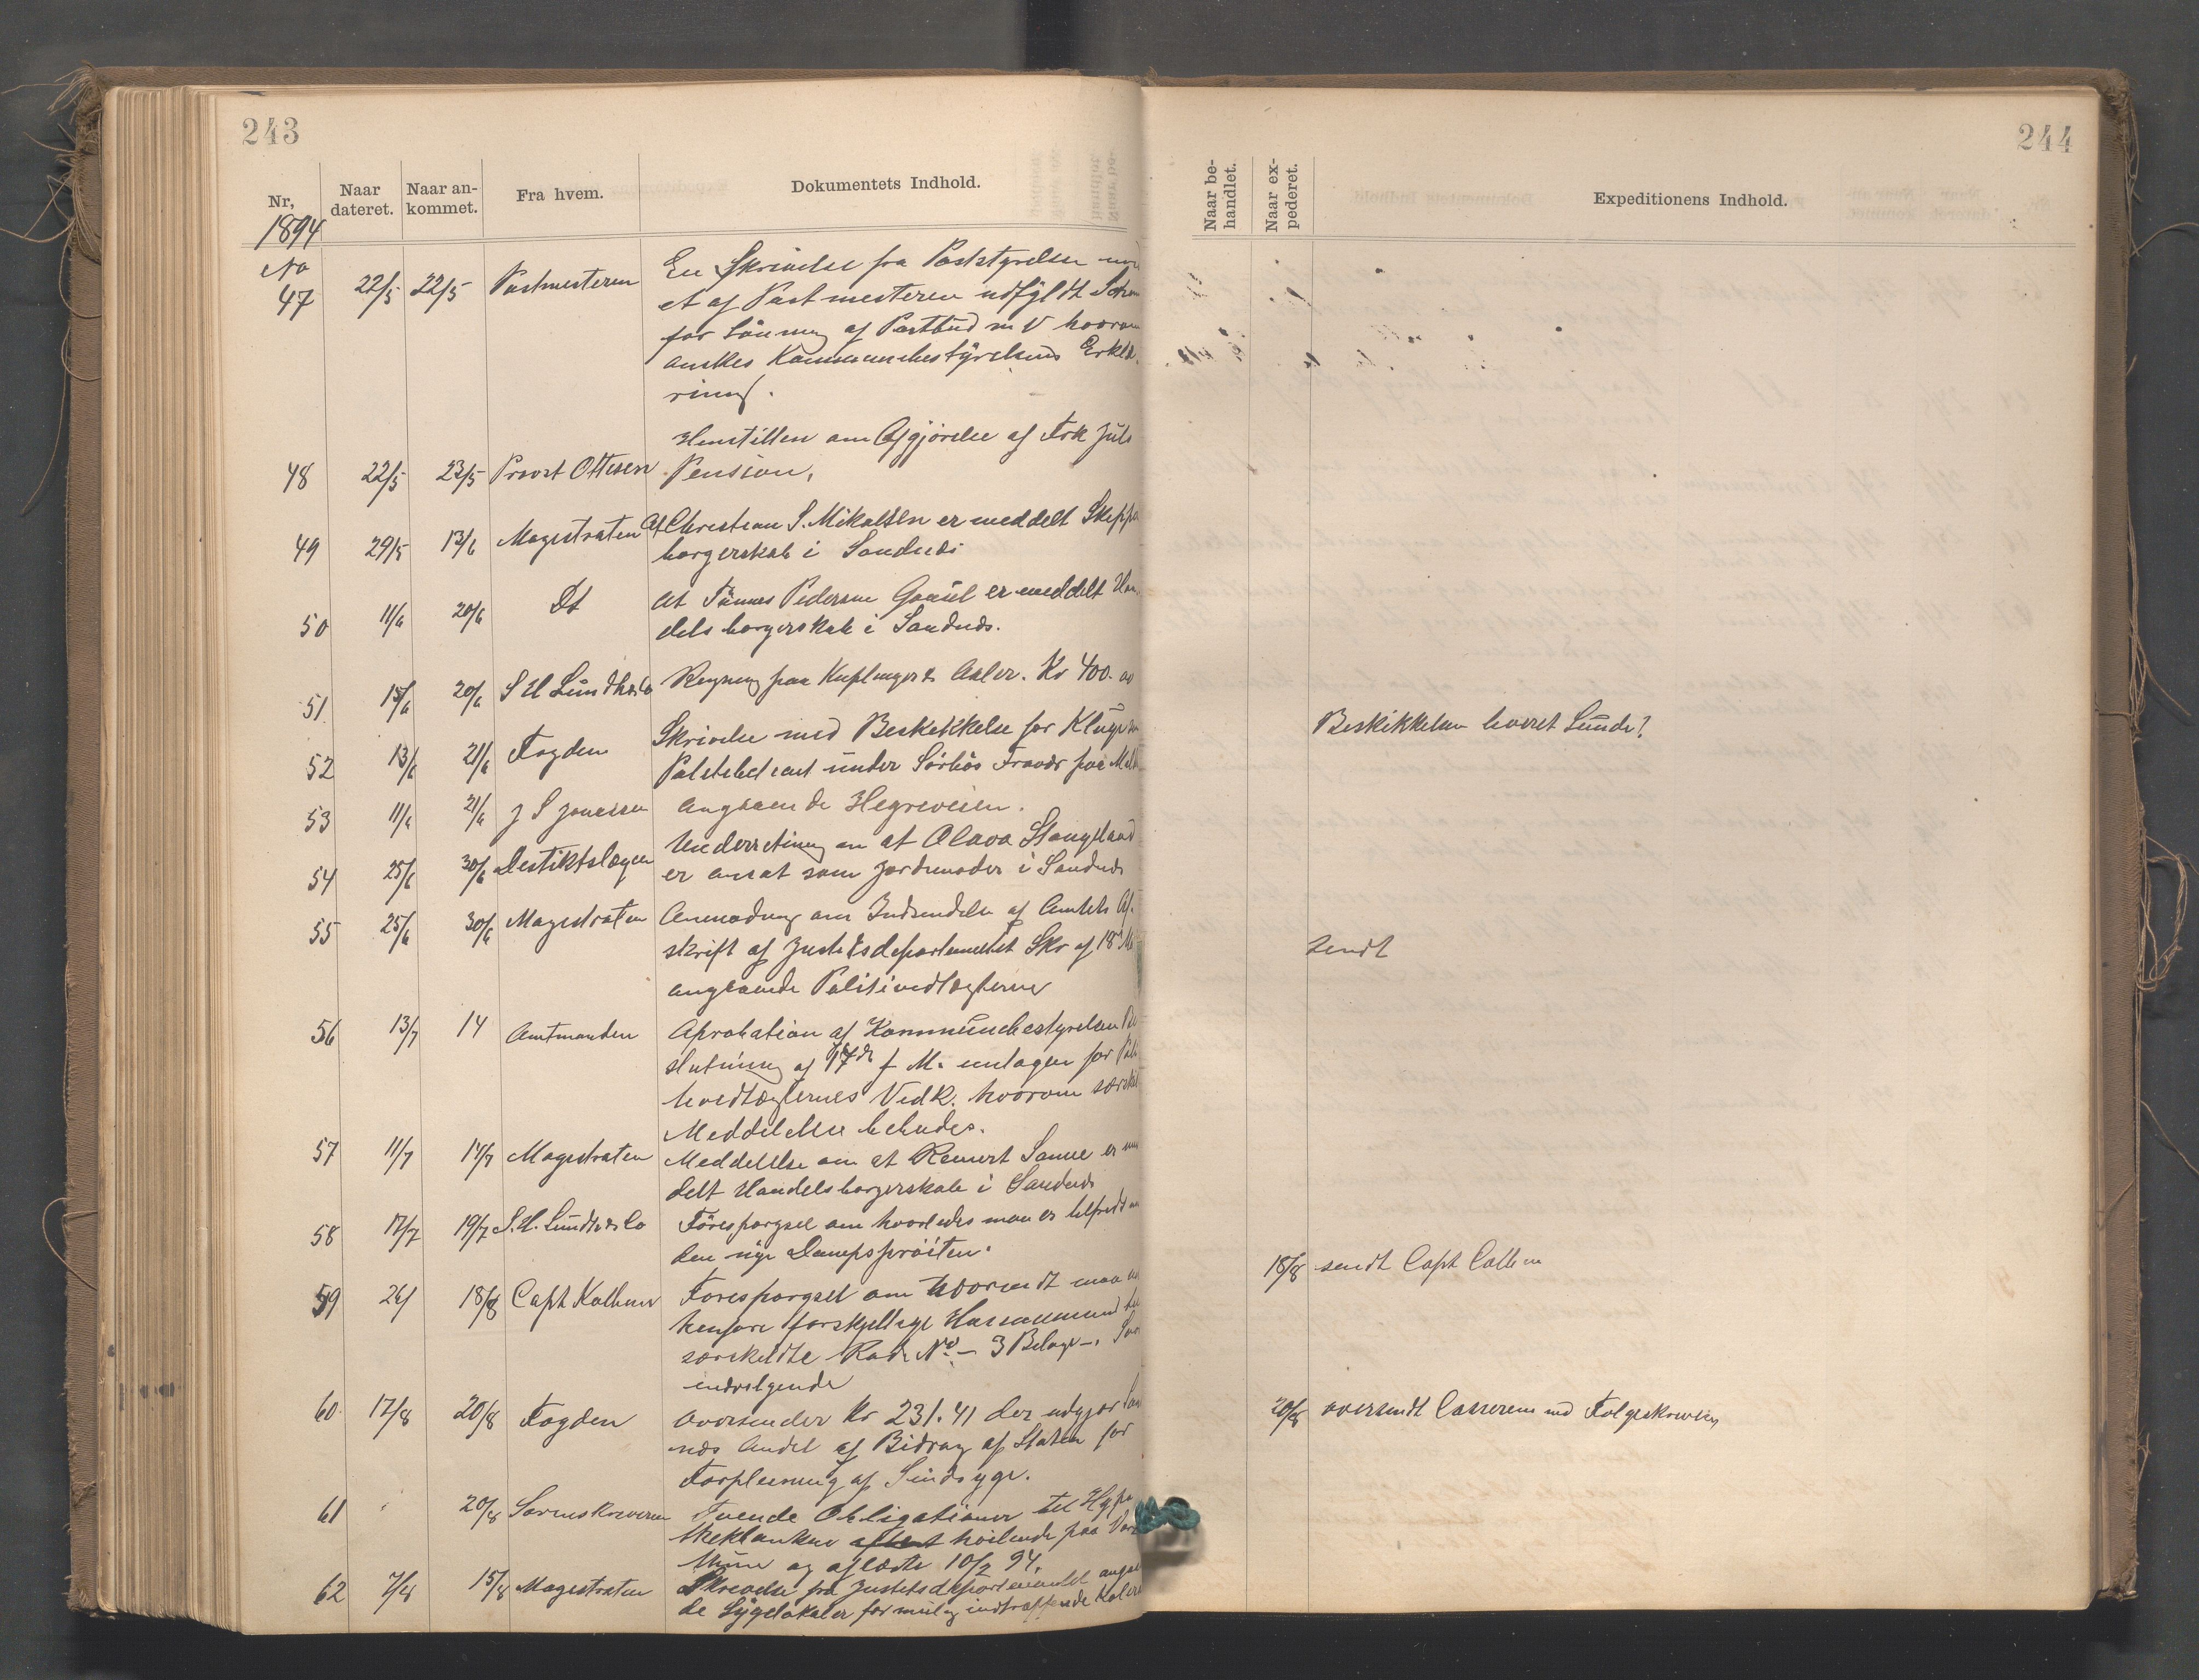 243
Nr, Naar dateret. Naar an-kommet. Fra hvem. Dokumentets Indhold.
1894
No
47 22/5 22/5 Postmesteren En Skrivelse fra Poststyrelsen
et af Postmesteren udfyldt
for Lönning af Postbud m V hvorom
önskes Kommunebestyrelsens Erklæ
ring.
Henstillen om Afgjörelse af Frk Juls
48 22/5 23/5 Provst Ottesen Pension,
49 29/5 13/6 Magistraten At Christian S. Mikalsen er meddelt Skipper
borgerskab i Sandnæs
50 11/6 20/6 Dt At Tönnes Pedersen Gausel er meddelt Han
dels borgerskab i Sandnæs.
51 15/6 20/6 S H Lundh & Co Regning paa Kuplinger & Aaler. Kr 400. 00
52 13/6 21/6 Fogden Skrivelse med Beskikkelse for
Politibetjent under Sörbös Fravær paa
53 11/6 21/6 J S Jonassen angaaende Hegreveien.
54 25/6 30/6 Destiktslægen Underretning om at Olava Stangeland
er ansat som Jordmoder i Sandnæs
55 25/6 30/6 Magistraten Anmodning om Indsendelse af Amtets Af
skrift af Justitsdepartementet Skr af 18
angaaende Politivedtægterne
56 13/7 14 Amtmanden Aprobation af Kommunebestyrelsen Be
slutning af 17de f M. undtagen for Poli
tivedtægternes Vedk. hvorom særskilt
Meddelelse bebudes.
57 11/7 14/7 Magistraten Meddelelse om at Reinert Sanne er
delt Handelsborgerskab i Sandnæs
58 17/7 19/7 S. H. Lundh & Co Förespörgsel om hvorledes man er tilfreds
den nye Dampspröiten.
59 26/ 18/8 Capt Kolbun Forespörgsel om hvorvidt maa
henföre forskjellige
særskildte Rode No – 3 Belage –.
indvelgende
60 17/8 20/8 Fogden Oversender Kr 231.41 der udgjör
næs Andel af Bidrag af Staten for
Forpleining af Sindsyge.
61 20/8 Sorenskriveren Tvende Obligationer til Hypo
thekbanken heilende paa
og aflæste 10/2 94.
62 7/8 15/8 Magistraten Skrivelse fra Justitsdepartementet angaaen
de Sygelokaler for mulig indtræffende
244
Naar be-handlet. Naar ex-pederet. Expeditionens Indhold.
Beskikkelsen leveret Lunde?
sendt
18/8 sendt Capt
20/8 oversendt Cassereren med Fölgeskrivelse